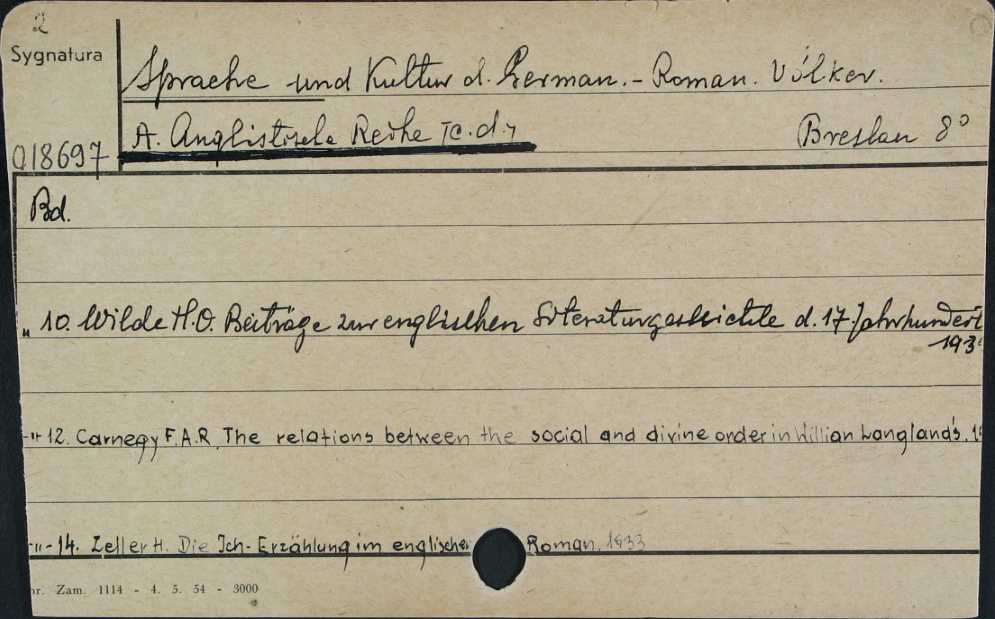 2
Sygnatura
Sprache und Kultur d. German.-Roman. Völker.
A. Anglistische Reihe Tc.d.4 Breslau 8°
018697
Bd.
„ 10. Wilde H.O. Beiträge zur englischen Literaturgeschichte d. 17. Jahrhundert
193
-"- 12. Carnegy F.A.R. The relations between the social and divine order in Willian Langland's.
-"- 14. Zeller H. Die Ich-Erzählung im englischen Roman. 1933
Zam. 1114 - 4. 5. 54 - 3000